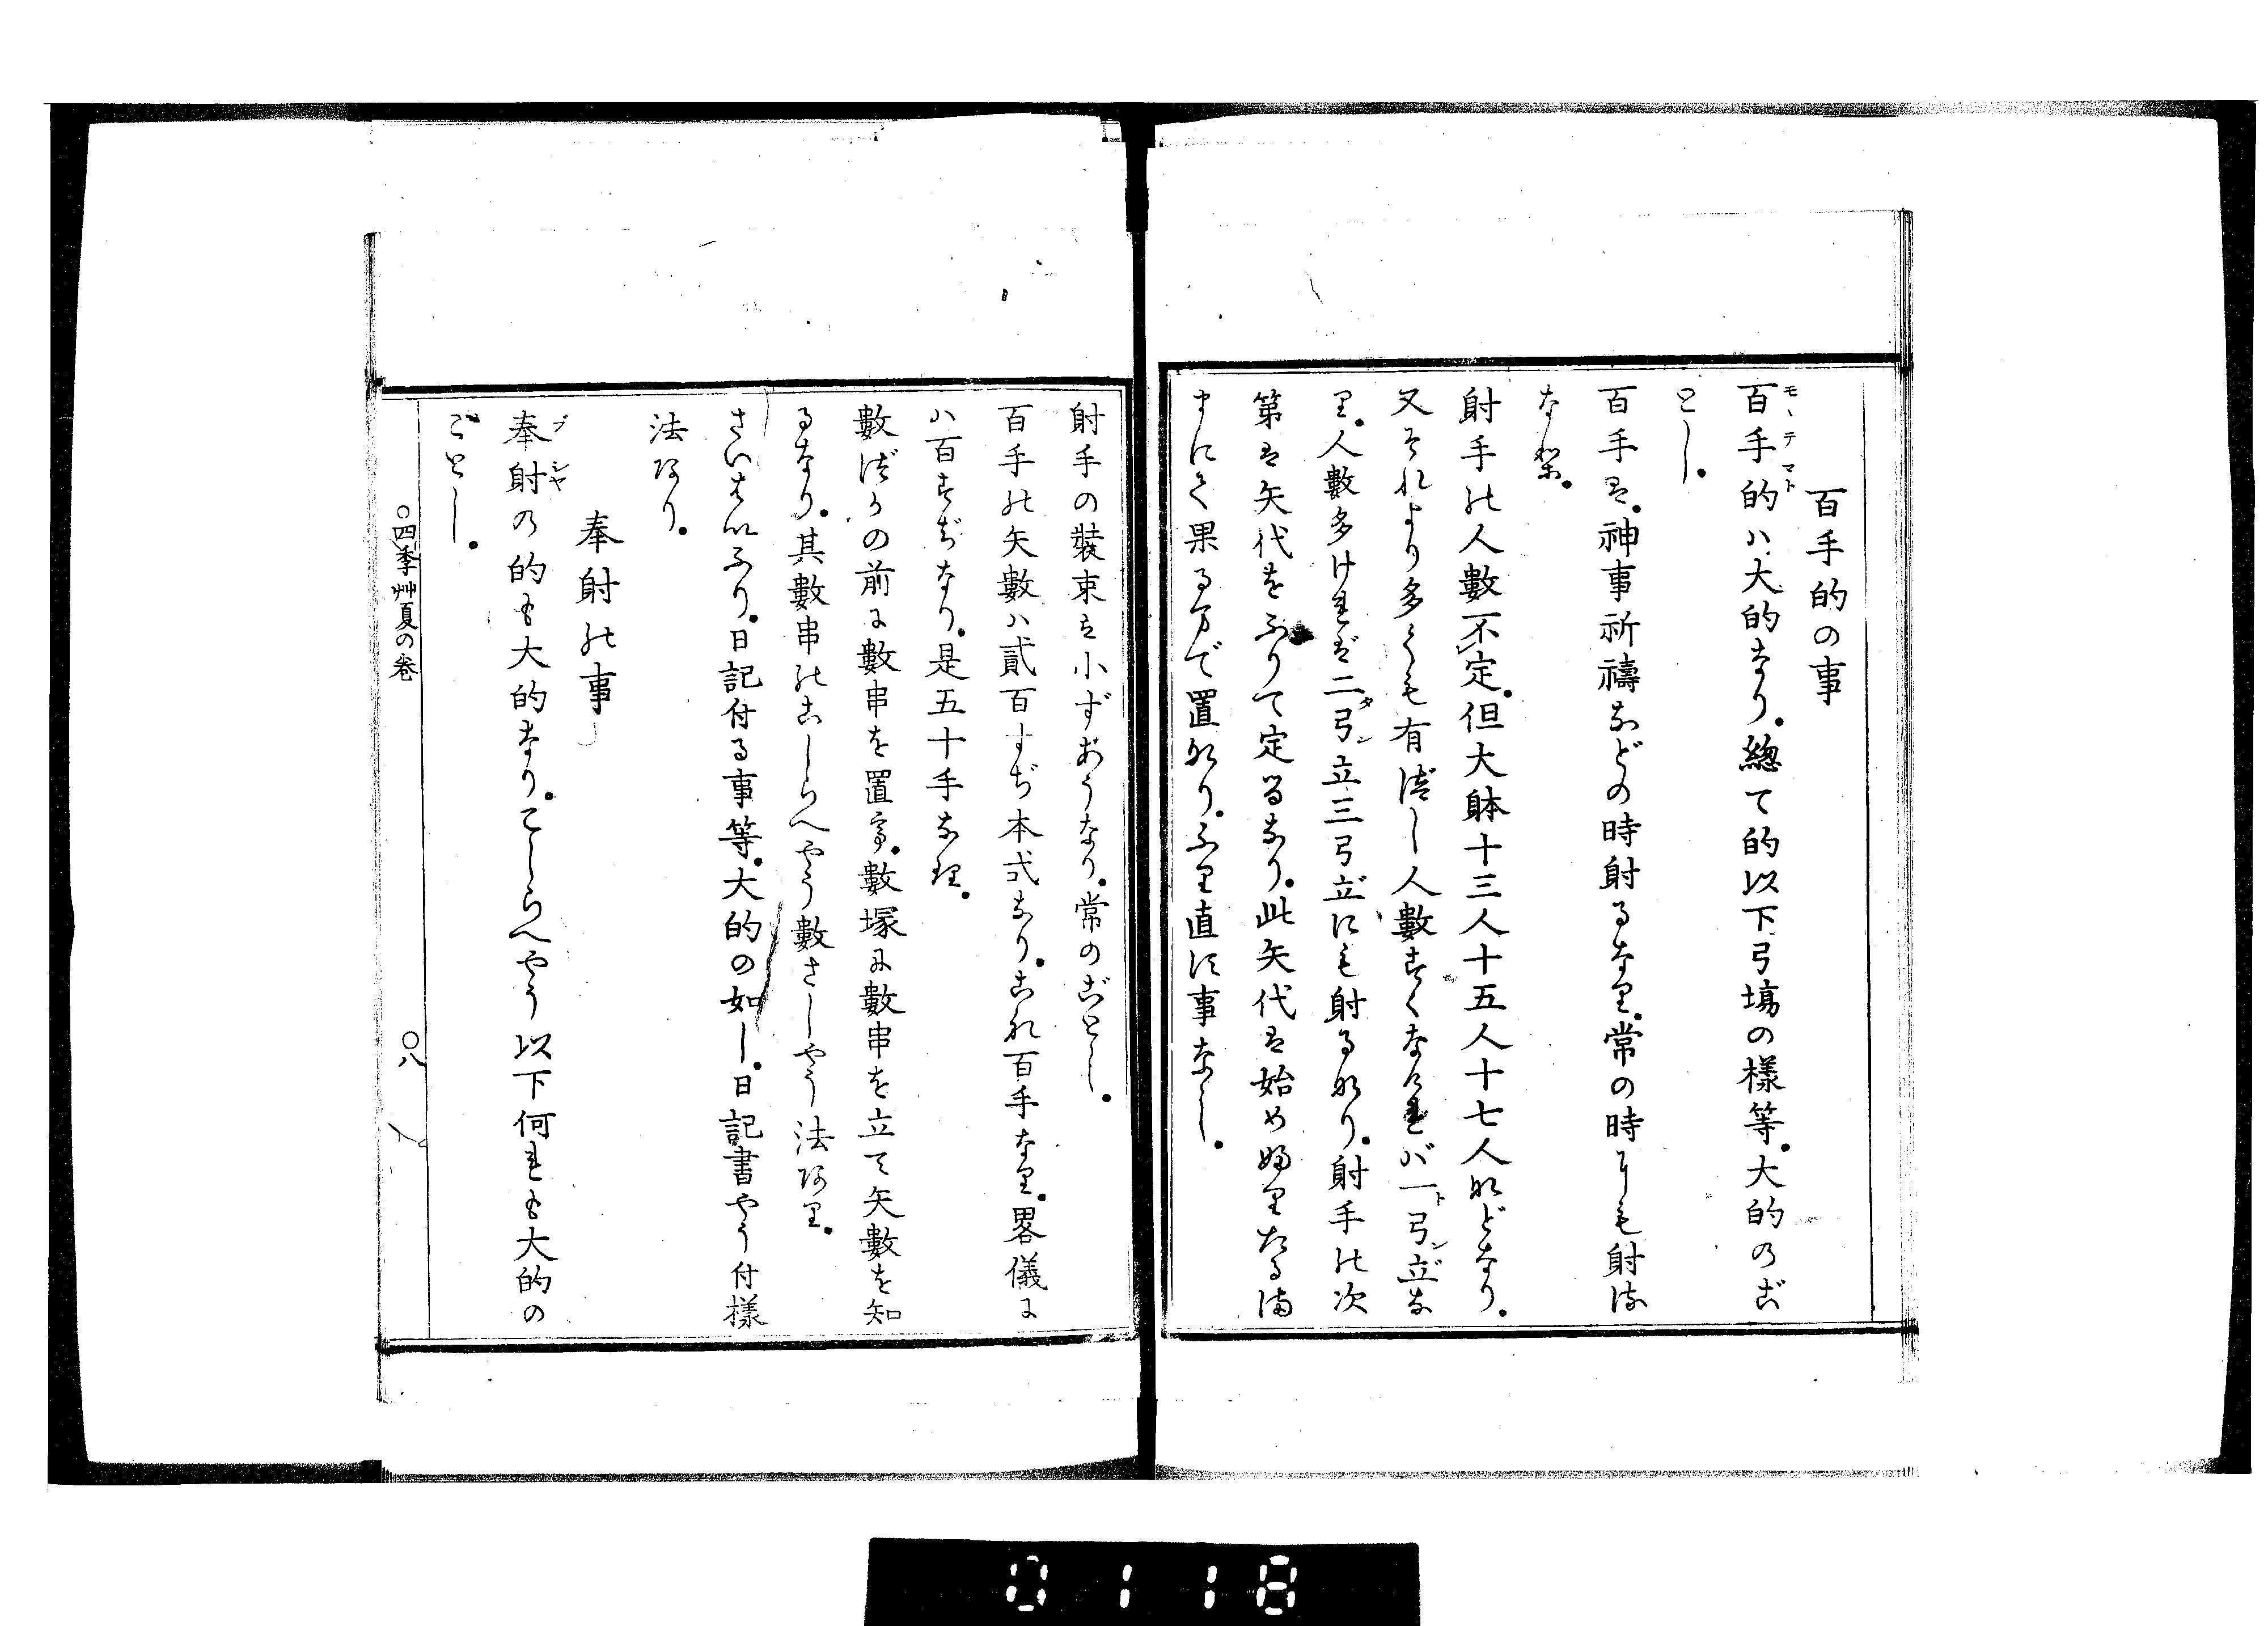 百手的の事
百手的ハ大的なり。總て的以下弓塲の樣等。大的のご
とし。
百手は。神事祈禱などの時射るなり。常の時にも射る
なり。
射手の人數不定。但大躰十三人十五人十七人などなり。
又それより多くも有べし人數すくなければ一弓立な
り。人數多ければ二弓立三弓立にも射るなり。射手の次
第は矢代をふりて定るなり。此矢代は始めふりたるま
まにて果るまで置なり。ふり直す事なし。
射手の裝束は小ずあうなり。常のごとし。
百手の矢數ハ貳百すぢ本式なり。これ百手なり。畧儀に
ハ百すぢなり。是五十手なり。
數塚の前に數串を置て。數塚に數串を立て矢數を知
るなり。其數串のこしらへやう數さしやう法あり。
さいはいふり。日記付る事等。大的の如し。日記書やう付樣
法あり。
奉射の事
奉射の的も大的なり。こしらへやう以下何れも大的の
ごとし。
○四季艸夏の卷
○八
0118